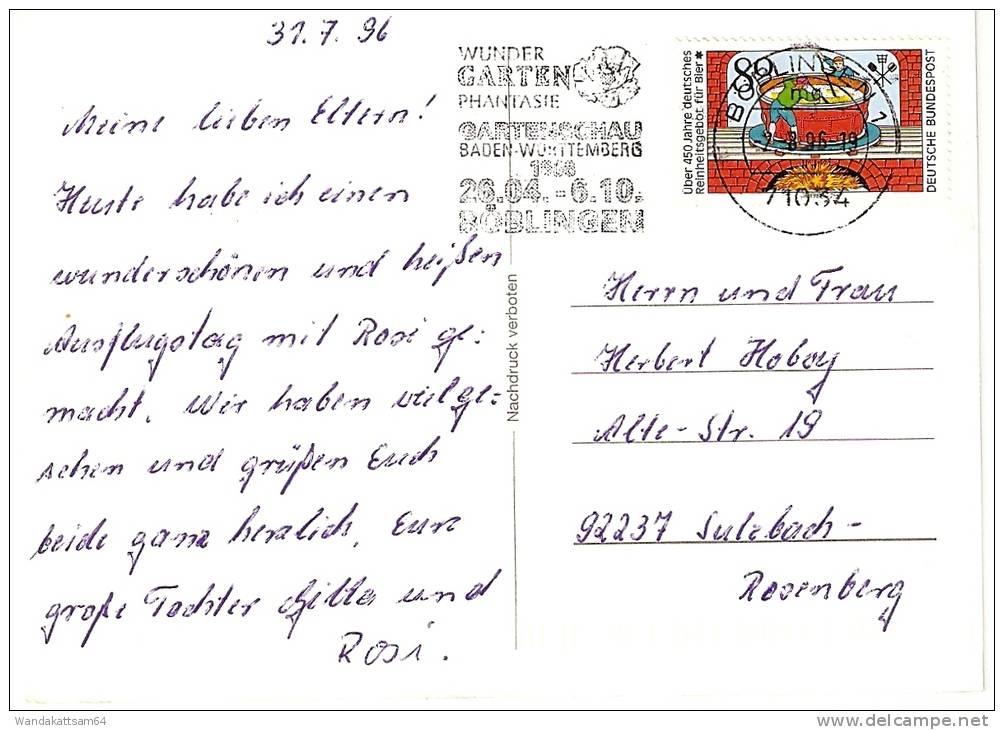 31.7.96
Meine lieben Eltern!
Heute habe ich einen
wunderschönen und heißen
Ausflugstag mit Rosi ge=
macht. Wir haben viel ge=
sehen und grüßen Euch
beide ganz herzlich. Eure
große Tochter Gitta und
Rosi.
WUNDER
GARTEN
PHANTASIE
GARTENSCHAU
BADEN-WÜRTTEMBERG
1996
26.04.-6.10.
BÖBLINGEN
80
Über 450 Jahre deutsches
Reinheitsgebot für Bier
DEUTSCHE BUNDESPOST
BÖBLINGEN 1
mg
-2.8.96-19
71034
Nachdruck verboten
Herrn und Frau
Herbert Hoboy
Alte-Str. 19
92237 Sulzbach-
Rosenberg
Wandakattsam64
delcampe.net